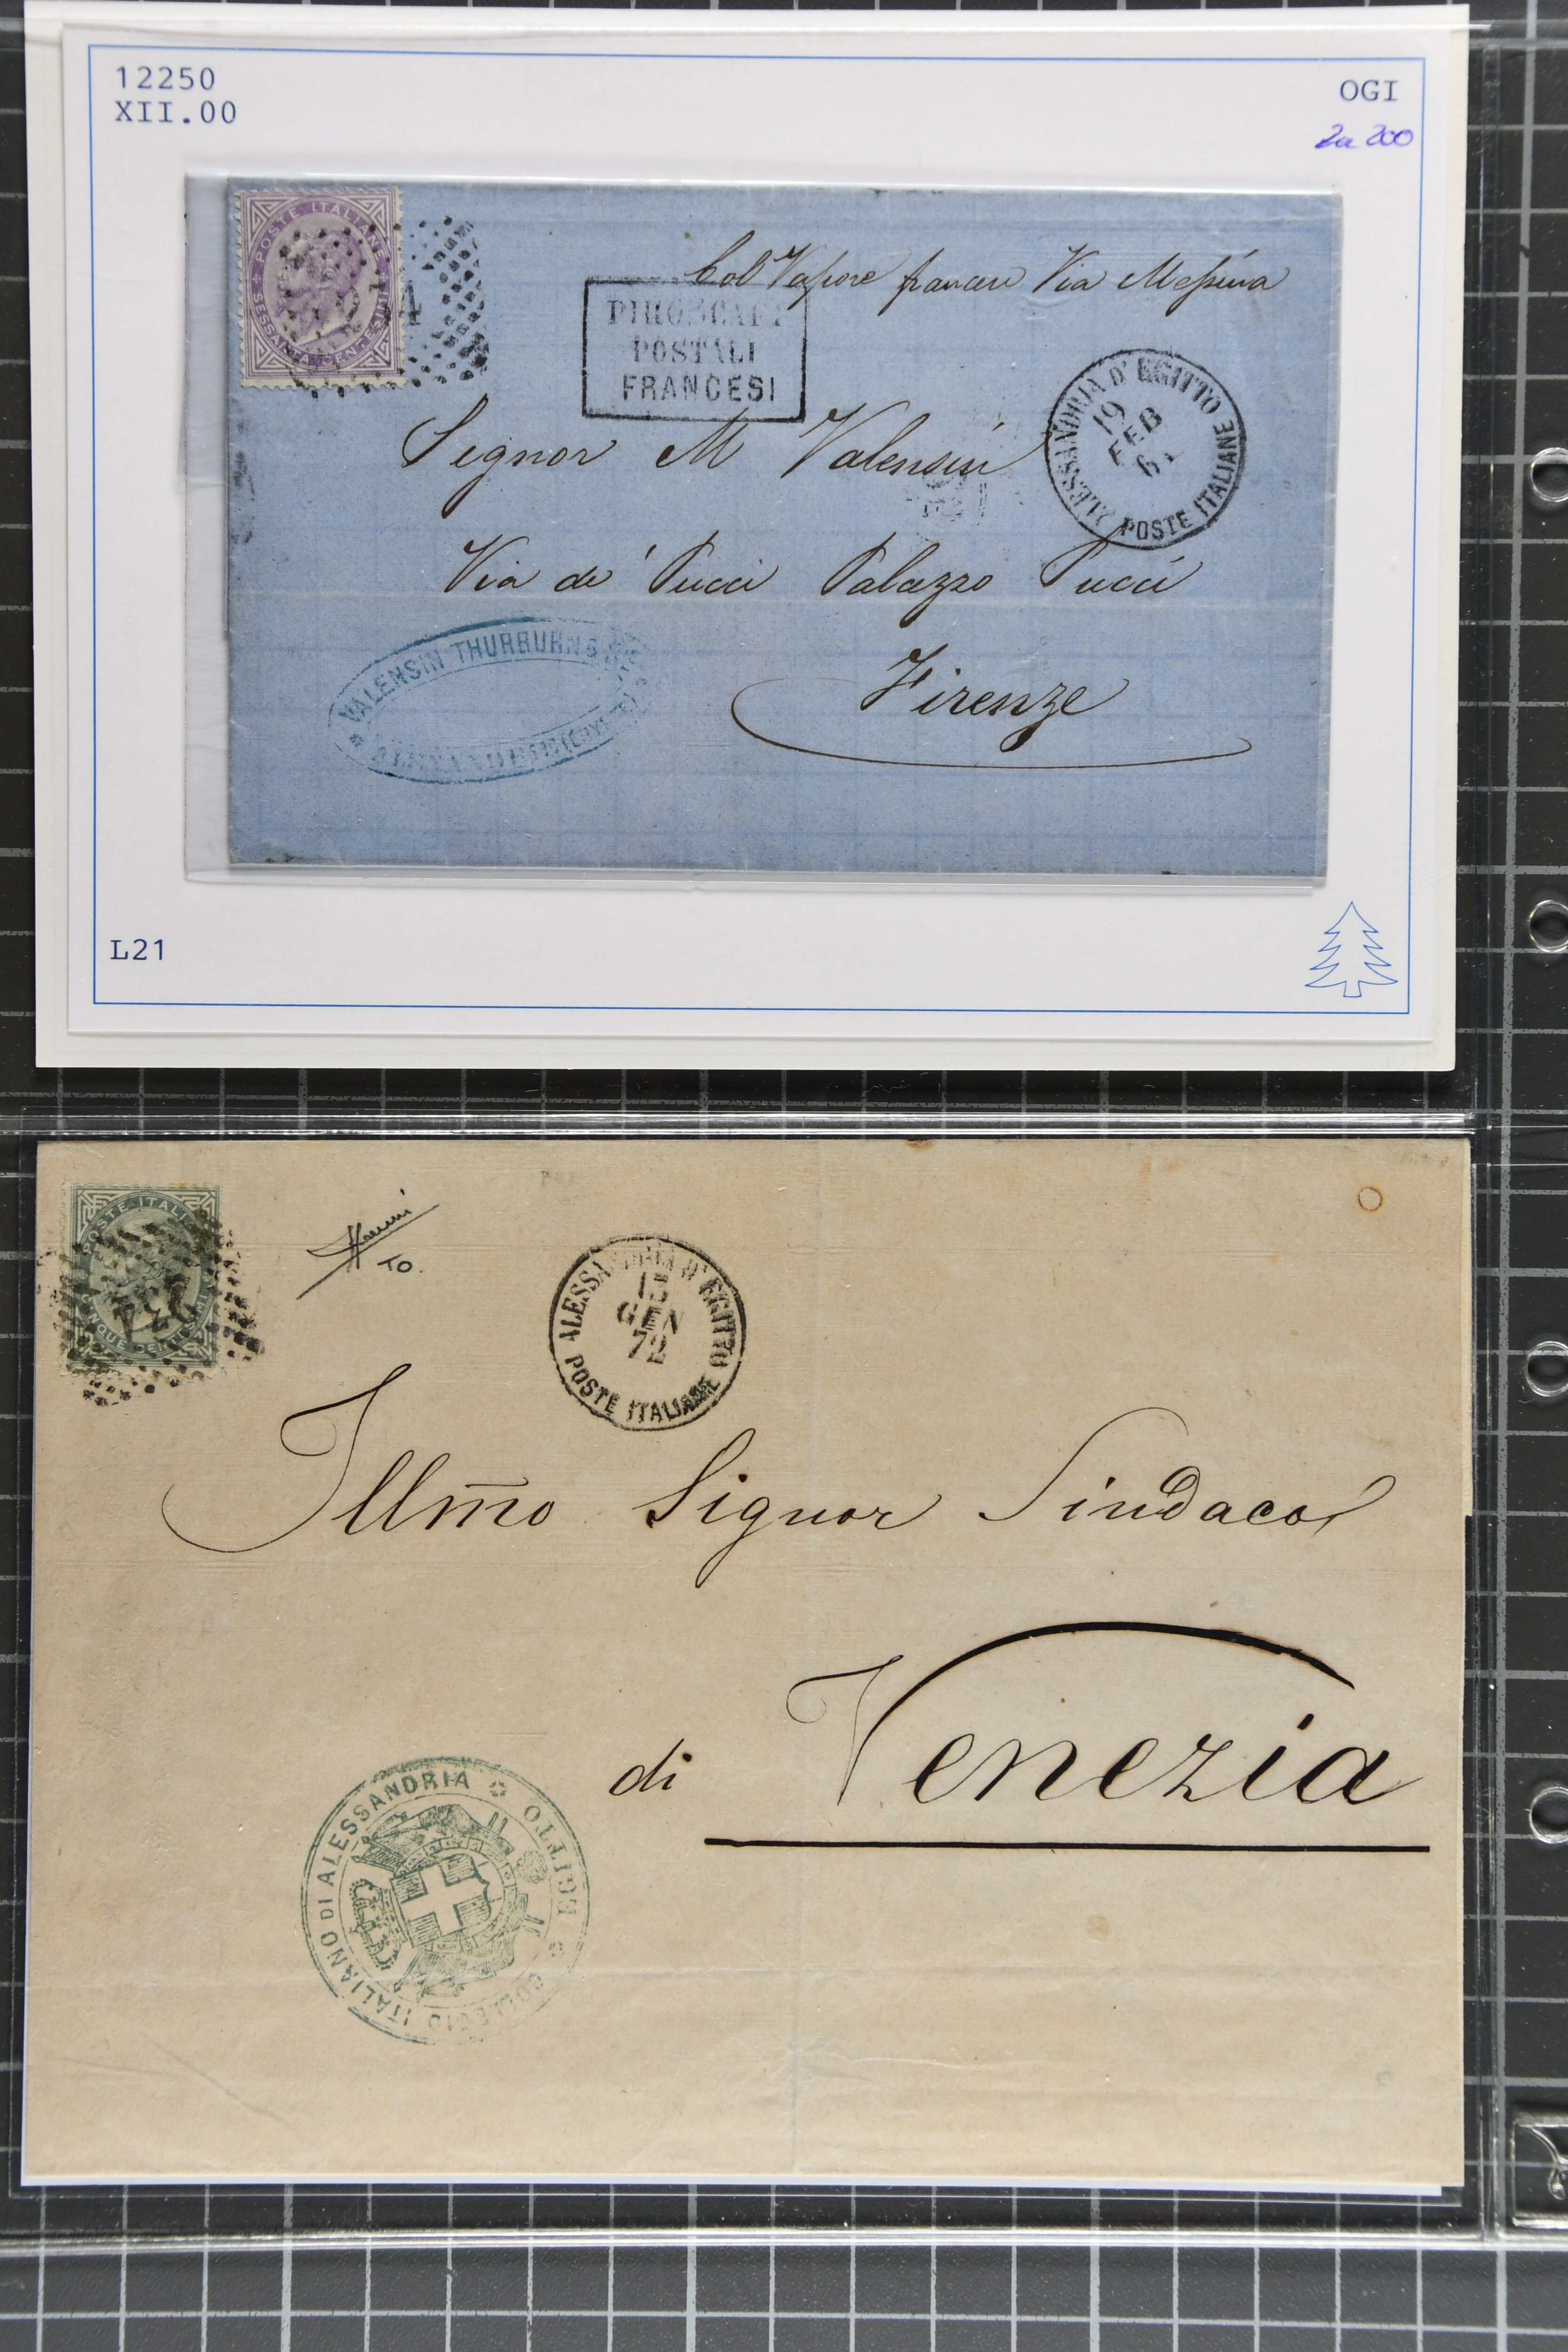 12250
XII.00
OGI
2a 200
POSTE ITALIANE
SESSANTA CENTESIMI
Col Vapore francese Via Messina
PIROSCAFI
POSTALI
FRANCESI
ALESSANDRIA D' EGITTO
19
FEB
POSTE ITALIANE
Signor M Valensin
Via de' Pucci Palazzo Pucci
Firenze
VALENSIN THURBURN &
L21
POSTE ITALI
CINQUE CENTESIMI
234
TO.
ALESSANDRIA D' EGITTO
GEN
72
POSTE ITALIANE
Illm̃o Signor Sindaco
di Venezia
COLLEGIO ITALIANO DI ALESSANDRIA
EGITTO